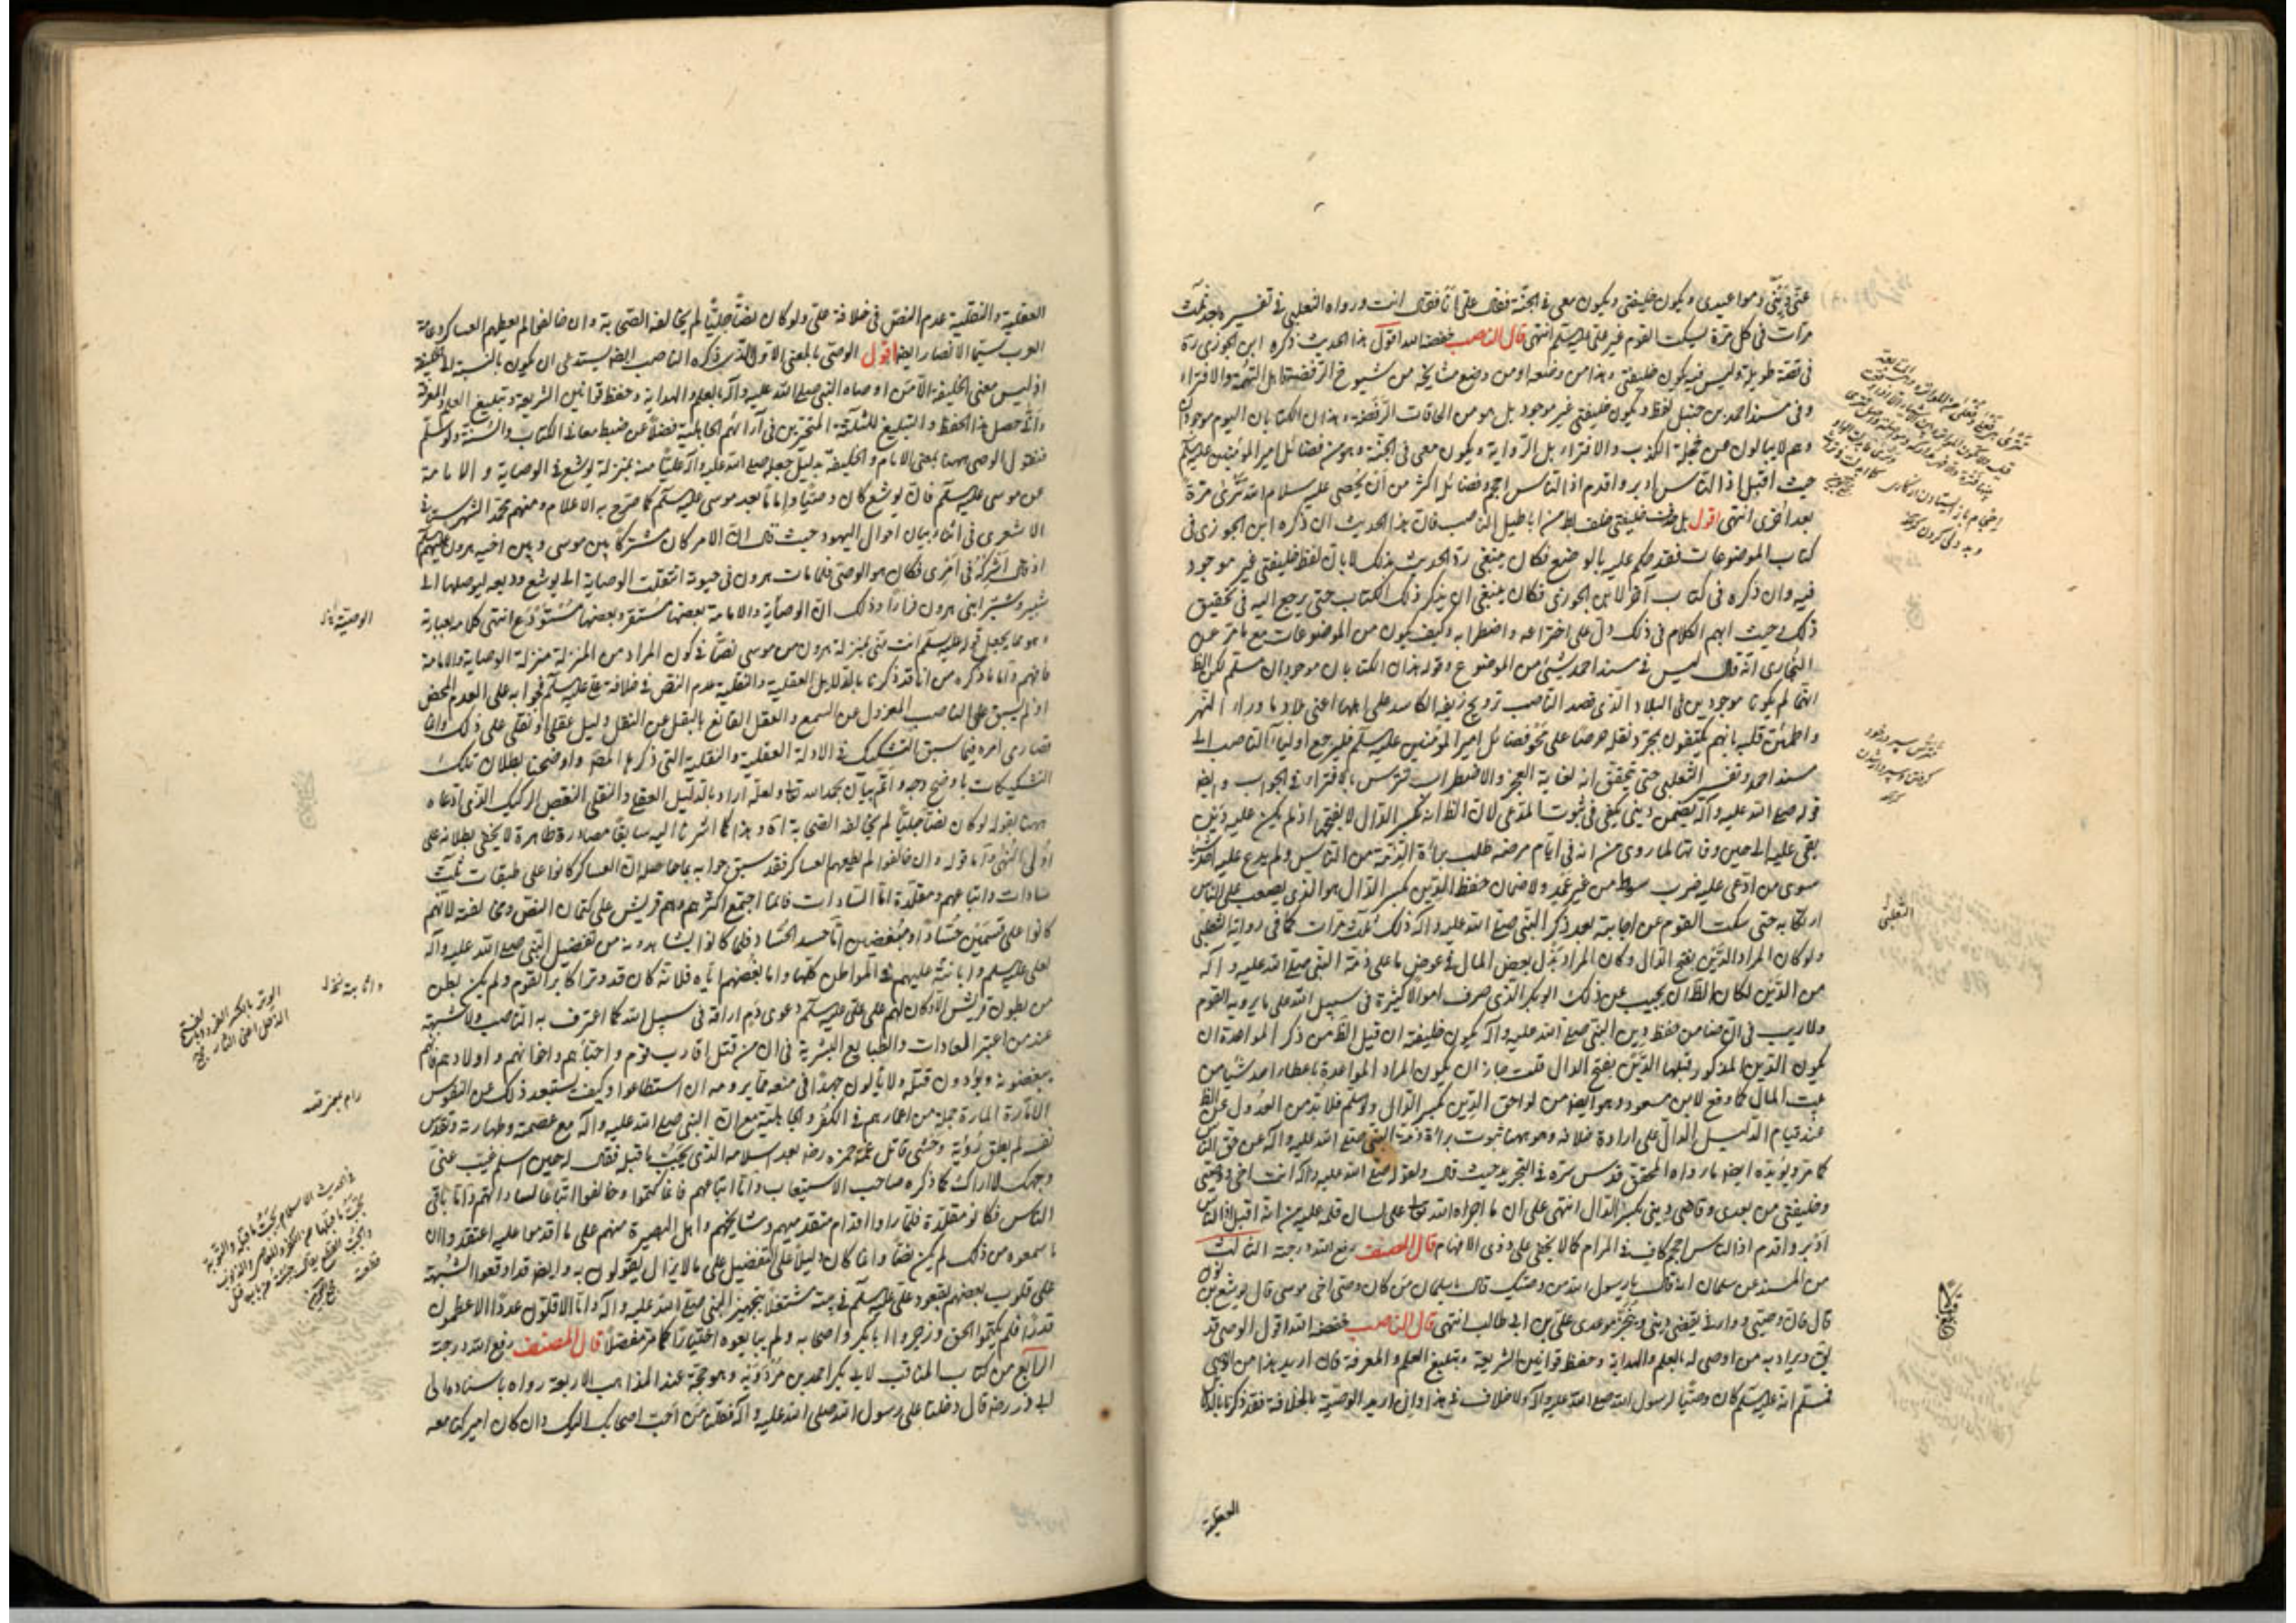 عنّي ديني ومواعيدي ويكون خليفتي ويكون معي في الجنة فقال علي انا فقال انت ورواه الثعلبي في تفسيره بعد ثلث
مرات في كل مرة يسكت القوم غير علي عليه السلم انتهى قال الناصب خفضه الله اقول هذا الحديث ذكره ابن الجوزي
في قصة طويلة وليس فيه يكون خليفتي وهذا من وضعه او من وضع مشايخه من شيوخ الرفضة اهل التهمة والافتراء
وفي مسند احمد بن حنبل لفظ ويكون خليفتي غير موجود بل هو من الحاقات الرفضة وهذان الكتابان اليوم موجودان
وهم لا يبالون من خجلة الكذب والافتراء بل الرواية ويكون معي في الجنة وهو من فضائل امير المؤمنين عليه السلم
حيث اقبل اذ الناس ادبر واقدم اذ الناس احجم وفضائله اكثر من أن يحصى عليه سلام الله تترى مرة
بعد اخرى انتهى اقول من اباطيل الناصب فان هذا الحديث ان ذكره ابن الجوزي في
كتاب الموضوعات فقد حكم عليه بالوضع فكان ينبغي ردّ الحديث بذلك لا بان لفظ خليفتي غير موجود
فيه وان ذكره في كتاب آخر لابن الجوزي فكان ينبغي ان يذكر ذلك الكتاب حتى يرجع اليه في تحقيق
ذلك وحيث ابهم الكلام في ذلك دل على اختراعه واضطرابه وكيف يكون من الموضوعات مع ما مرّ عن
البخاري انه قال ليس في مسند احمد شيئ من الموضوع وقوله هذان الكتابان موجودان مسلم لكن الظ
انهما لم يكونا موجودين في البلاد الذي قصد الناصب ترويج زيفه الكاسد على اهلها اعني بلاد ما وراء النهر
واطمئن قلبه بانهم يكتفون بمجرد نقله حرصا على محو فضائل امير المؤمنين عليه السلم فليرجع اولياء الناصب الى
مسند احمد وتفسير الثعلبي حتى يتحقق انه لغاية العجز والاضطراب تترس بالافتراء في الجواب وايضا
قوله صلى الله عليه وآله يضمن ديني يكفي في ثبوت المدعى لان الظ انه بكسر الدال لا بفتحها اذ لم يكن عليه دين
يبقى عليه الى حين وفاته لما روي من انه في ايام مرضه طلب براءة الذمة من الناس ولم يدع عليه احد شيئا
سوى من ادعى عليه ضرب سوط من غير عمد ولا ضمان حفظ الدين بكسر الدال هو الذي يصعب على الناس
ارتكابه حتى سكت القوم عن اجابته بعد ذكر النبي صلى الله عليه واله ذلك ثلث مرات كما في رواية الثعلبي
ولو كان المراد الدين بفتح الدال وكان المراد بذل بعض المال في عوض ما على ذمة النبي صلى الله عليه وآله
من الدين لكان الظ ان يجيب عن ذلك ابو بكر الذي صرف اموالا كثيرة في سبيل الله على ما يرويه القوم
ولا ريب في ان ضامن حفظ دين النبي صلى الله عليه وآله يكون خليفته ان قيل الظ من ذكر المواعدة ان
يكون الدين المذكور قبلها الدين بفتح الدال قلت جاز ان يكون المراد المواعدة باعطاء احد شيئا من
بيت المال كما وقع لابن مسعود وهو ايضا من لواحق الدين بكسر الدال ولو سلم فلا بد من العدول عن الظ
عند قيام الدليل الدال على ارادة خلافه وهو ههنا ثبوت براءة ذمة النبي صلى الله عليه وآله عن حق الناس
كما مر ويؤيده ايضا ما رواه المحقق قدس سره في التجريد حيث قال ولقوله صلى الله عليه واله انت اخي ووصيي
وخليفتي من بعدي وقاضي ديني بكسر الدال انتهى على ان ما اجراه الله تعالى على لسان قلمه عليه من انه اقبل اذ الناس
ادبر واقدم اذ الناس احجم كاف في المرام كما لا يخفى على ذوي الافهام قال المصنف رفع الله درجته الثالث
من المسند عن سلمان انه قال يا رسول الله من وصيك قال يا سلمان من كان وصي اخي موسى قال يوشع بن نون
قال فان وصيي ووارثي يقضي ديني وينجز موعدي علي بن ابي طالب انتهى قال الناصب خفضه الله اقول الوصي قد
يق ويراد به من اوصى له بالعلم والهداية وحفظ قوانين الشريعة وتبليغ العلم والمعرفة فان اريد هذا من الوصي
فمسلم انه عليه السلم كان وصيا لرسول الله صلى الله عليه وآله ولا خلاف في هذا وان اريد الوصية بالخلافة فقد ذكرنا بالدلائل
الثعلبي
العقلية
العقلية والنقلية عدم النص في خلافة علي ولو كان نصا جليا لم يخالفه الصحابة وان خالفوا لم يطعهم العساكر وعامة
العرب سيما الانصار ايضا اقول الوصي بالمعنى الاول الذي ذكره الناصب ايضا يستدعي ان يكون بالنسبة الى الخليفة
اذ ليس معنى الخليفة الا من اوصاه النبي صلى الله عليه وآله بالعلم والهداية وحفظ قوانين الشريعة وتبليغ العلم والمعرفة
وانى حصل هذا الحفظ والتبليغ للثلثة المتحيرين في آرائهم الجاهلية فضلا عن ضبط معاني الكتاب والسنة ولو سلم
فنقول الوصي ههنا بمعنى الامام والخليفة بدليل جعله صلى الله عليه وآله عليا منه بمنزلة يوشع في الوصاية والامامة
عن موسى عليه السلم فان يوشع كان وصيا واماما بعد موسى عليه السلم كما صرح به الاعلام ومنهم محمد الشهرستاني
الاشعري في اثناء بيان احوال اليهود حيث قال ان الامر كان مشتركا بين موسى وبين اخيه هرون عليهما السلم
اذ قال اشركه في امري فكان هو الوصي فلما مات هرون في حيوته انتقلت الوصاية الى يوشع وديعة ليوصلها الى
شبير وشبر ابني هرون قرارا وذلك ان الوصاية والامامة بعضها مستقر وبعضها مستودع انتهى كلامه بعبارته
وهو مما يجعل قوله عليه السلم انت مني بمنزلة هرون من موسى نصا في كون المراد من المنزلة منزلة الوصاية والامامة
فافهم واما ما ذكره من انا قد ذكرنا بالدلايل العقلية والنقلية عدم النص في خلافة علي عليه السلم فجوابه على العدم المحض
اذ لم يسبق على الناصب المعزول عن السمع والعقل القانع بالبقل عن النقل دليل عقلي او نقلي على ذلك وانما
قصارى امره فيما سبق التشكيك في الادلة العقلية والنقلية التي ذكرها المصنف واوضحنا بطلان تلك
التشكيكات باوضح وجه واتم بيان بحمد الله تعالى ولعله اراد بالدليل العقلي والنقلي النقض الركيك الذي ادعاه
ههنا بقوله لو كان نصا جليا لم يخالفه الصحابة آه وهذا كما اشرنا اليه سابقا مصادرة ظاهرة لا يخفى بطلانه على
اولي النهى واما قوله وان خالفوا لم يطعهم العساكر فقد سبق جوابه بما حاصله ان العساكر كانوا على طبقات ثلث
سادات واتباعهم ومقلدة اما السادات فانما اجتمع اكثرهم وهم قريش على كتمان النص ومخالفته لانهم
كانوا على قسمين حسادا ومبغضين اما حسد الحساد فلما كانوا يشاهدونه من تفضيل النبي صلى الله عليه وآله
لعلي عليه السلم وابانته عليهم في المواطن كلها واما بغضهم اياه فلانه كان قد وتر اكابر القوم ولم يكن بطن
من بطون قريش الا وكان لهم على علي عليه السلم دعوى دم اراقه في سبيل الله كما اعترف به الناصب ولا شبهة
عند من اعتبر العادات والطبايع البشرية في ان من قتل اقارب قوم واحبائهم واخوانهم واولادهم فانهم
يبغضونه ويؤدون قتله ولا يألون جهدا في منعه عما يرومه ان استطاعوا وكيف يستبعد ذلك عن النفوس
الامارة المارة جملة من اعمارهم في الكفر والجاهلية مع ان النبي صلى الله عليه وآله مع عصمته وطهارته وتقدس
نفسه لم يطق رؤية وحشي قاتل عمه حمزه رضه بعد اسلامه الذي يجب ما قبله فقال له حين اسلم غيب عني
وجهك لا اراك كما ذكره صاحب الاستيعاب واما اتباعهم فانما كتموا وخالفوا اتباعا لساداتهم واما باقي
الناس فكانوا مقلدة فلما راوا اقدام متقدميهم ومشايخهم واهل البصيرة منهم على ما اقدموا عليه اعتقدوا ان
ما سمعوه من ذلك لم يكن نصا وانما كان دليلا على التفضيل على ما لا يزال يقولون به وايضا قد اوقعوا الشبهة
على قلوب بعضهم بقعود علي عليه السلم في بيته مشتغلا بتجهيز النبي صلى الله عليه وآله واما الاقلون عددا الاعظمون
قدرا فلم يكتموا الحق وزجروا ابا بكر واصحابه ولم يبايعوه اختيارا كما مر مفصلا قال المصنف رفع الله درجته
الرابع من كتاب المناقب لابي بكر احمد بن مردويه وهو حجة عند المذاهب الاربعة رواه باسناده الى
ابي ذر رضه قال دخلنا على رسول الله صلى الله عليه وآله فقلنا من احب اصحابك اليك وان كان امر كنا معه